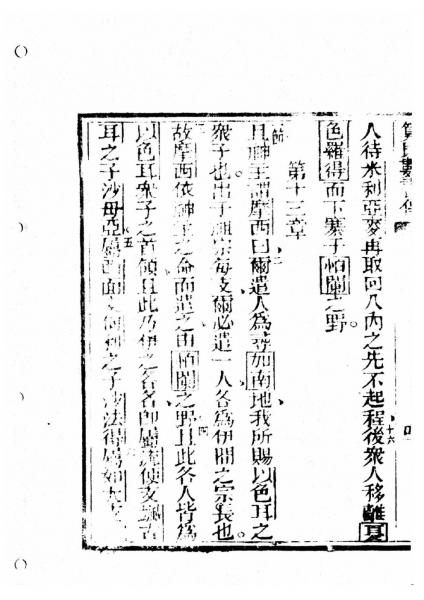 人待米利亞麥再取回入內之先不起程後衆人移離夏
十六
色羅得而下寨于怕闌之野
第十三章
且神主謂摩西曰爾遣人為尋加南地我所賜以色耳之
二
衆子也出于祖宗每支爾必遣一人各為伊間之宗長也
故摩西依神主之命而遣之由怕闌之野且此各人皆為
四
以色耳衆子之首領且此乃伊之各名即屬
便支
耳之子沙母亞屬
之子沙法得屬如
五